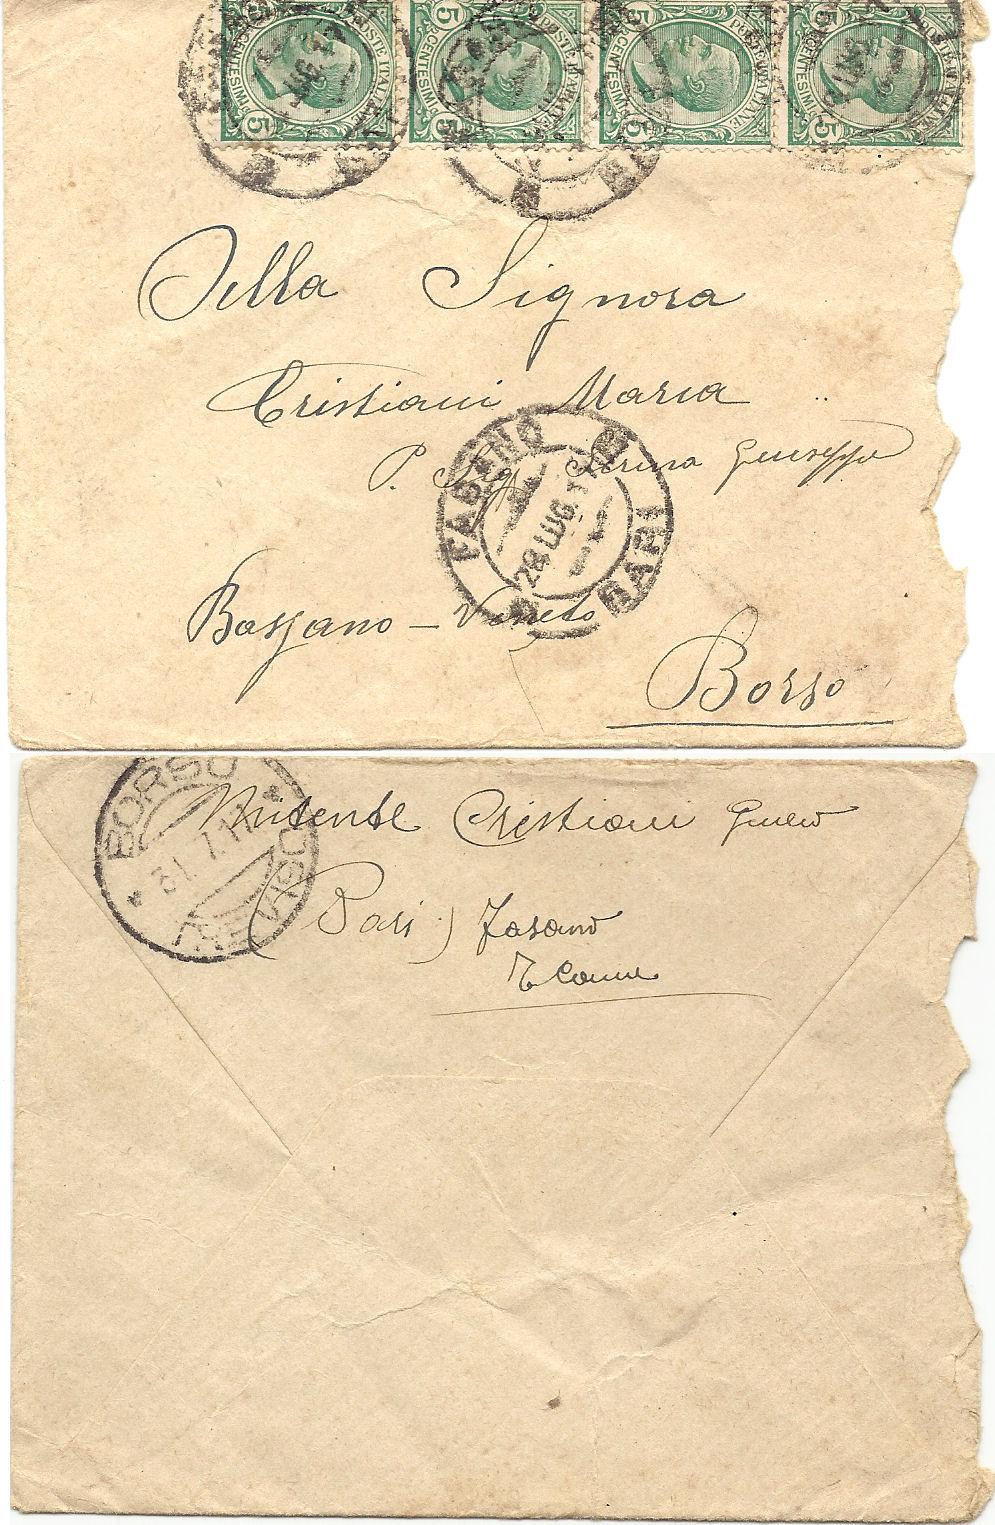 POSTE ITALIANE
CENTESIMI 5
POSTE ITALIANE
CENTESIMI 5
POSTE ITALIANE
CENTESIMI 5
POSTE ITALIANE
CENTESIMI 5
Alla Signora
Cristiani Maria
P. Sig. Serina Giuseppe
FASANO
BARI
28 LUG. 17
Bassano - Veneto
Borso
BORSO
TREVISO
31.7.17
Mittente Cristiani
(Bari) Fasano